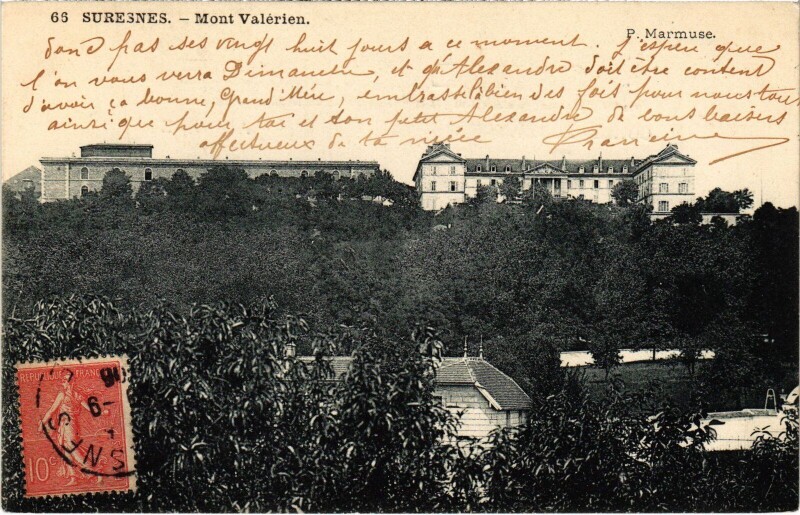 66 SURESNES. – Mont Valérien.
P. Marmuse.
dond pas ses vingt huit jours a ce moment. J'espère que
l'on vous verra Dimanche, et qu'Alexandre doit être content
d'avoir ça bonne, Grand Mère, embrasse le bien des fois pour nous tous
ainsi que pour toi et son petit Alexandre de bons baisers
affectueux de ta nièce Francine
REPUBLIQUE FRANÇAISE
10c